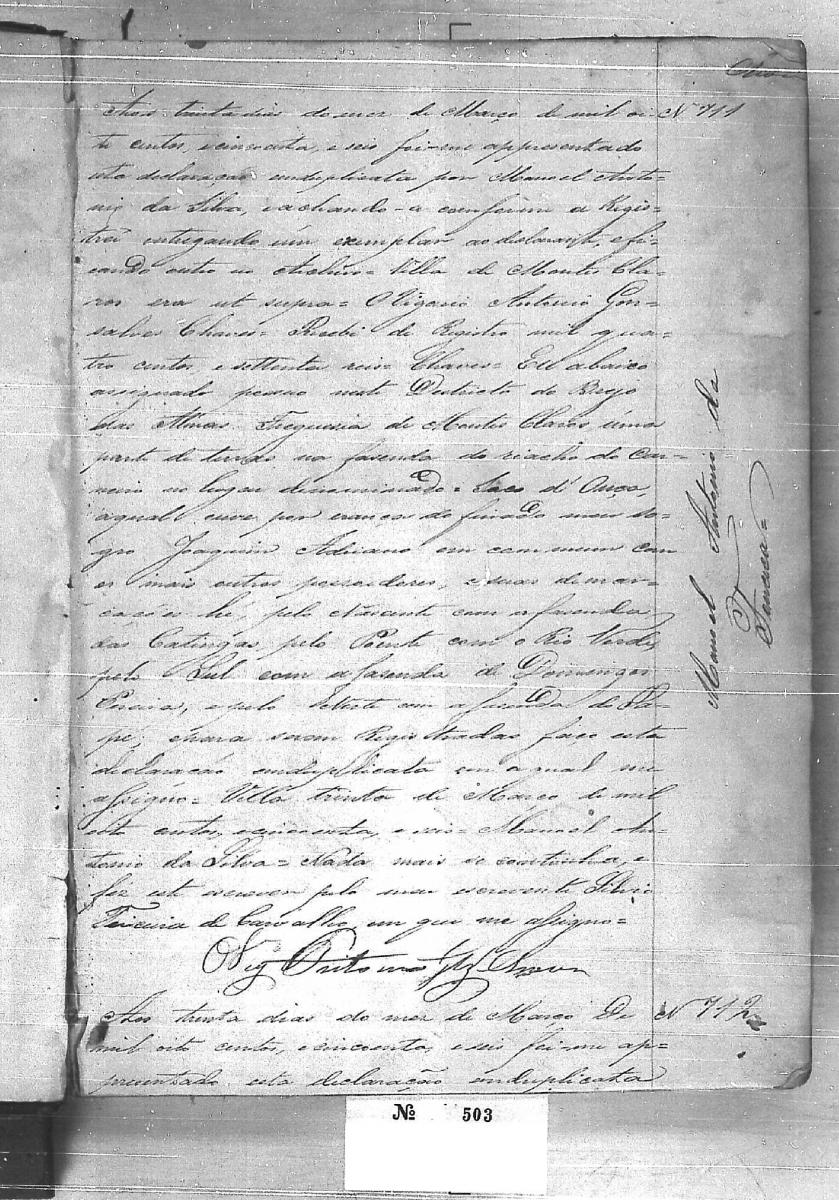 Aos trinta dias do mez de Março de mil oi- N 711
to centos, e cincoenta, e seis foi-me appresentado
esta declaração emduplicata por Manoel Anto-
nio da Silva, e achando-a conforme a Regis-
trei entregando úm exemplar ao declarante, e fi-
cando outro no Archivo= Villa de Montes Cla-
ros era ut supra= O Vigario Antonio Gon-
salves Chaves= Recebi de Registro mil qua-
tro centos, e settenta reis= Chaves= Eu abaixo
assignado possuo neste Destricto do Brejo
das Almas Freguesia de Montes Claros uma
parte de terras na fasenda do riacho do Car-
neiro no lugar denominado= Saco d'Onça,
a qual ouve por erança do finado meu so-
gro Joaquim Adriano em commum com
os mais outros possuidores, e suas demar-
cacões hé, pelo Nascente com a fasenda
das Catingas, pelo Poente com o Rio Verde,
pelo Sul com a fasenda de Domingos
Pereira, e pelo Norte com a fasenda do Sa-
pé; e para serem Registradas faço esta
declaracão emduplicata em a qual me
assigno= Villa trinta de Março de mil
oito centos, e cincoenta, e seis= Manoel An-
tonio da Silva= Nada mais se continha, e
fez este escrever pelo meu escrevente Silvio
Teixeira de Carvalho, em que me assigno=
O Vig Antonio Glz Chaves
Manoel Antonio da
Aos trinta dias do mez de Março De N 712
mil oito centos, e cincoenta, e seis foi-me ap=
presentado esta declaração emduplicata
№ 503